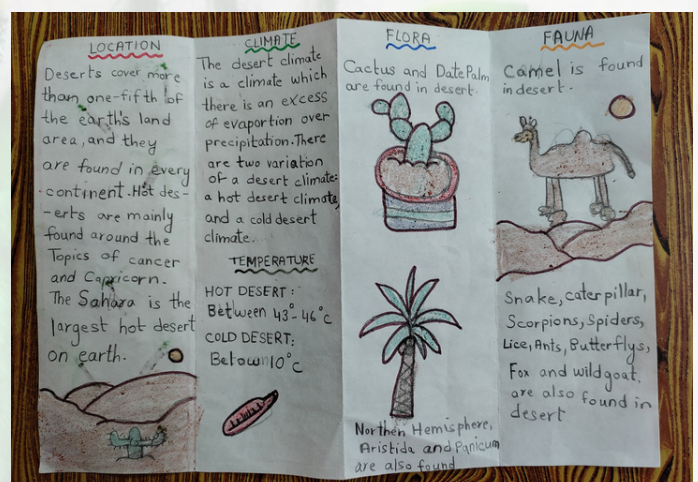 LOCATION
Deserts cover more
than one-fifth of
the earth's land
area, and they
are found in every
continent. Hot des-
-erts are mainly
found around the
Topics of cancer
and Capricorn.
The Sahara is the
largest hot desert
on earth.
CLIMATE
The desert climate
is a climate which
there is an excess
of evaportion over
precipitation. There
are two variation
of a desert climate:
a hot desert climate,
and a cold desert
climate.
TEMPERATURE
HOT DESERT:
Between 43°-46°c
COLD DESERT:
Below 10°c
FLORA
Cactus and Date Palm
are found in desert.
Northen Hemisphere,
Aristida and Panicum
are also found
FAUNA
Camel is found
in desert.
Snake, caterpillar,
Scorpions, Spiders,
Lice, Ants, Butterflys,
Fox and wildgoat.
are also found in
desert